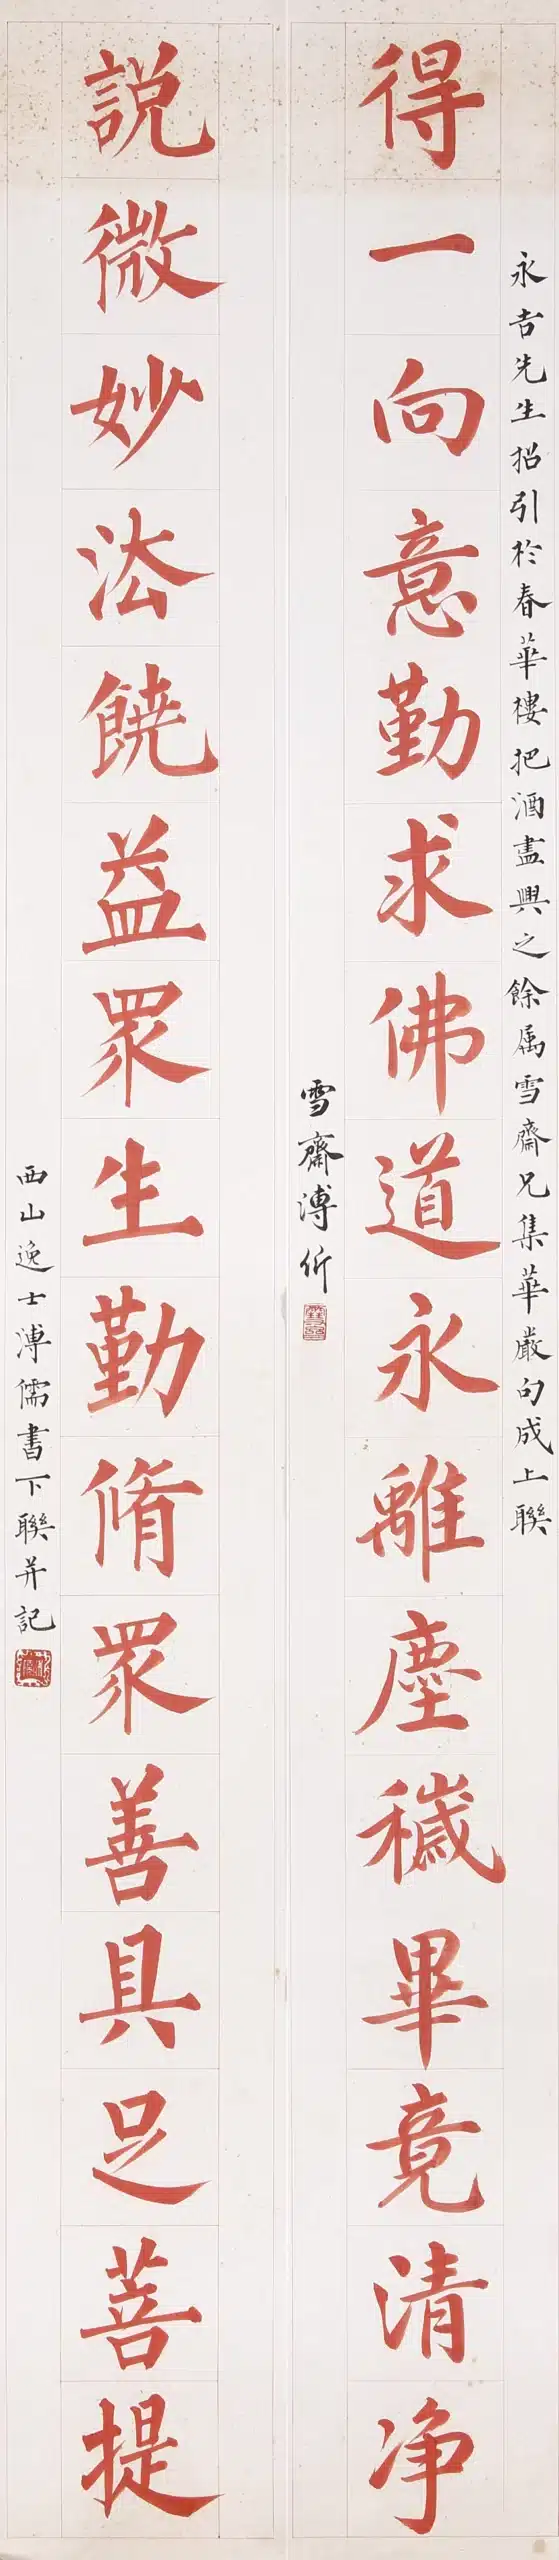 永吉先生招引於春華樓把酒盡興之餘属雪齋兄集華嚴句成上聯
得一向意勤求佛道永離塵穢畢竟清净
雪齋溥伒
說微妙法饒益眾生勤脩眾善具足菩提
西山逸士溥儒書下聯并記